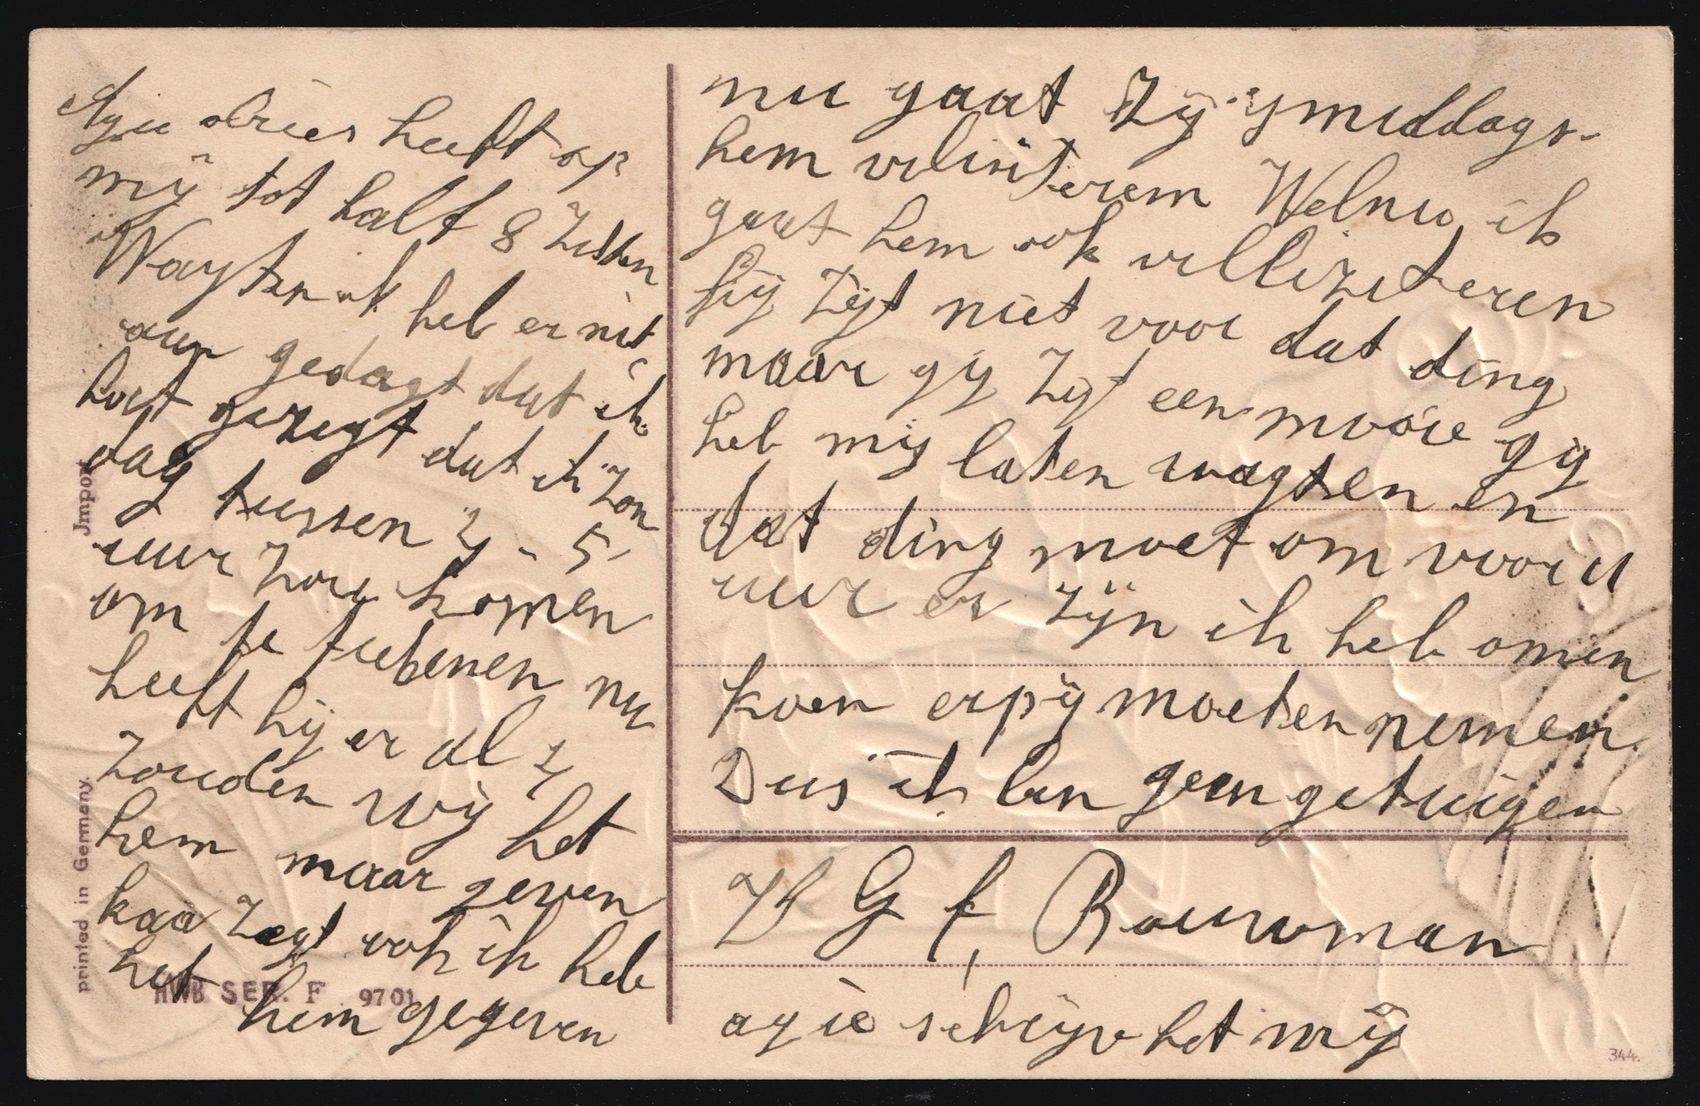 Agie dries heeft op
mij tot half 8 zitten
Wagten ik heb er niet
aan gedagt dat ik
hart gezegt dat ik zon
dag tussen 4 - 5
uur zou komen
om te tiebenen nu
heeft hij er al 4
zouden wij het
hem maar geven
kaa zegt ook ik heb
het hem gegeven
nu gaat zij smiddags
hem viliziterem Welnu ik
gaat hem ook villiziteren
hij zijt niet voor dat ding
maar gij zijt een mooie gij
heb mij laten wagten en
dat ding moet om voor 11
uur er zijn ik heb omen
koen erpij moeten nemen
Dus ik ben geen getuigen
W G f, Bouwman
agie schrijv het mij
Jmport
printed in Germany.
HWB SER. F 9701
344.